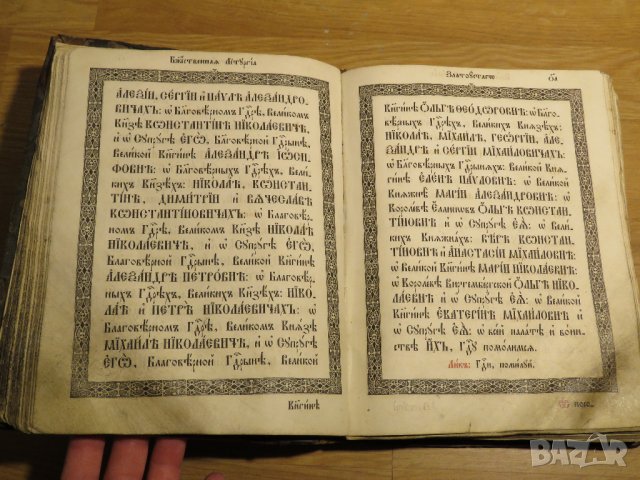 Бжⷭ҇твеннаѧ Лїтꙋргі́а
АЛЕѮІ́И, СЕ́РГІИ и҆ ПА́ѴЛѢ АЛЕѮА́НДРО-
ВИЧАХЪ: ѡ҆ Бл҃говѣ́рномъ Гдⷭ҇рѣ, Вели́комъ
Кнѧ́зѣ КѠНСТАНТІ́НѢ НІКОЛА́ЕВИЧѢ,
и҆ ѡ҆ Сꙋпрꙋ́гѣ Е҆ГѠ̀, Бл҃говѣ́рной Гдⷭ҇рынѣ,
Вели́кой Кн҃ги́нѣ АЛЕѮА́НДРѢ ІѠ́СИ-
ФОВНѢ: ѡ҆ Благовѣ́рныхъ Гдⷭ҇рѣхъ, Вели́-
кихъ Кн҃зѣхъ НІКОЛА́Ѣ, КѠНСТАН-
ТІ́НѢ, ДИМИ́ТРІИ и҆ ВѦЧЕСЛА́ВѢ
КѠНСТАНТІ́НОВИЧАХЪ: ѡ҆ Благовѣ́р-
номъ Гдⷭ҇рѣ, Вели́комъ Кн҃зѣ НІКОЛА́Ѣ
НІКОЛА́ЕВИЧѢ, и҆ ѡ҆ Сꙋпрꙋ́гѣ Е҆ГѠ̀,
Благовѣ́рной Гдⷭ҇рынѣ, Вели́кой Кн҃ги́нѣ
АЛЕѮА́НДРѢ ПЕТРО́ВНѢ: ѡ҆ Благовѣ́р-
ныхъ Гдⷭ҇рѣхъ, Вели́кихъ Кн҃зѣхъ НІКО-
ЛА́Ѣ и҆ ПЕТРѢ̀ НІКОЛА́ЕВИЧАХЪ: ѡ҆
Благовѣ́рномъ Гдⷭ҇рѣ, Вели́комъ Кнѧ́зѣ
МІХАИ́ЛѢ НІКОЛА́ЕВИЧѢ, и҆ ѡ҆ Сꙋпрꙋ́гѣ
Е҆ГѠ̀, Благовѣ́рной Гдⷭ҇рынѣ, Вели́кой
Кн҃ги́нѣ
Златоꙋ́стагѡ
Кн҃ги́нѣ Ѻ҆́ЛЬГѢ ѲЕОДѠ́РОВНѢ: ѡ҆ Бл҃го-
вѣ́рныхъ Гдⷭ҇рѣхъ, Вели́кихъ Кнѧзѣ́хъ:
НІКОЛА́Ѣ, МІХАИ́ЛѢ, ГЕѠ́РГІИ, АЛЕ-
ѮА́НДРѢ и҆ СЕ́РГІИ МІХА́ЙЛОВИЧАХЪ:
ѡ҆ Бл҃говѣ́рныхъ Гдⷭ҇рынѧхъ: Вели́кой Кн҃ги́нѣ
Е҆ЛЕ́НѢ ПА́ѴЛОВНѢ: ѡ҆ Вели́кой
Кнѧжнѣ̀ МАРІ́И АЛЕѮА́НДРОВНѢ: ѡ҆
Короле́вѣ Е҆́ллиновъ Ѻ҆́ЛЬГѢ КѠНСТАН-
ТІ́НОВНѢ, и҆ ѡ҆ Сꙋпрꙋ́гѣ Е҆Ѧ̀: ѡ҆ Вели́-
кихъ Кнѧжна́хъ: ВѢ́РѢ КѠНСТАН-
ТІ́НОВНѢ и҆ АНАСТАСІ́И МІХА́ЙЛОВНѢ:
ѡ҆ Вели́кой Кн҃ги́нѣ МАРІ́И НІКОЛА́ЕВНѢ:
ѡ҆ Короле́вѣ Виртембе́ргской Ѻ҆́ЛЬГѢ НІКО-
ЛА́ЕВНѢ и҆ ѡ҆ Сꙋпрꙋ́гѣ Е҆Ѧ̀: ѡ҆ Вели́кой
Кн҃ги́нѣ Е҆КАТЕРІ́НѢ МІХА́ЙЛОВНѢ и҆
ѡ҆ Сꙋпрꙋ́гѣ Е҆Ѧ̀: ѡ҆ все́й пала́тѣ и҆ во́ин-
ствѣ И҆́ХЪ, Гдⷭ҇ꙋ помо́лимсѧ.
Ли́къ: Гдⷭ҇и, поми́лꙋй.
BAZAR.bg